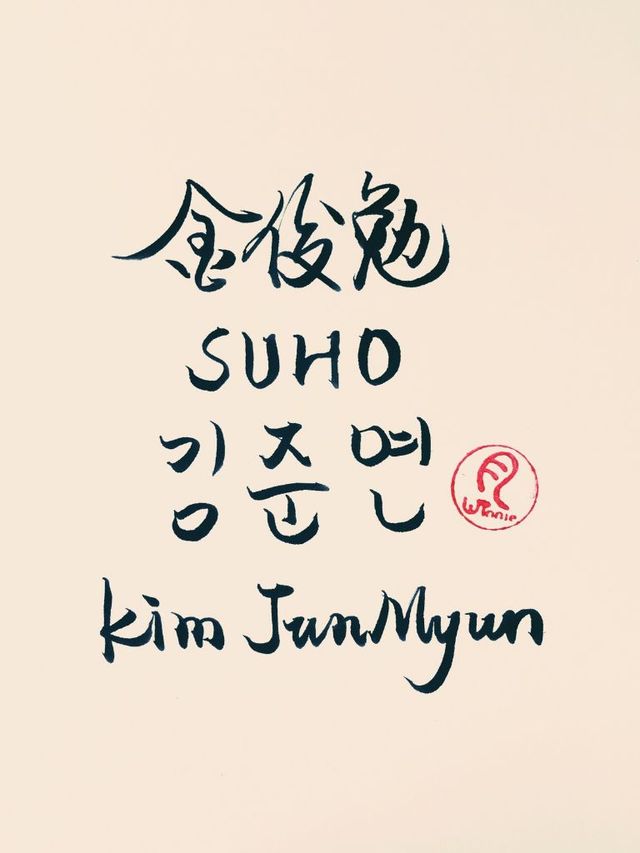 金俊勉
SUHO
김준면
Winnie
Kim JunMyun